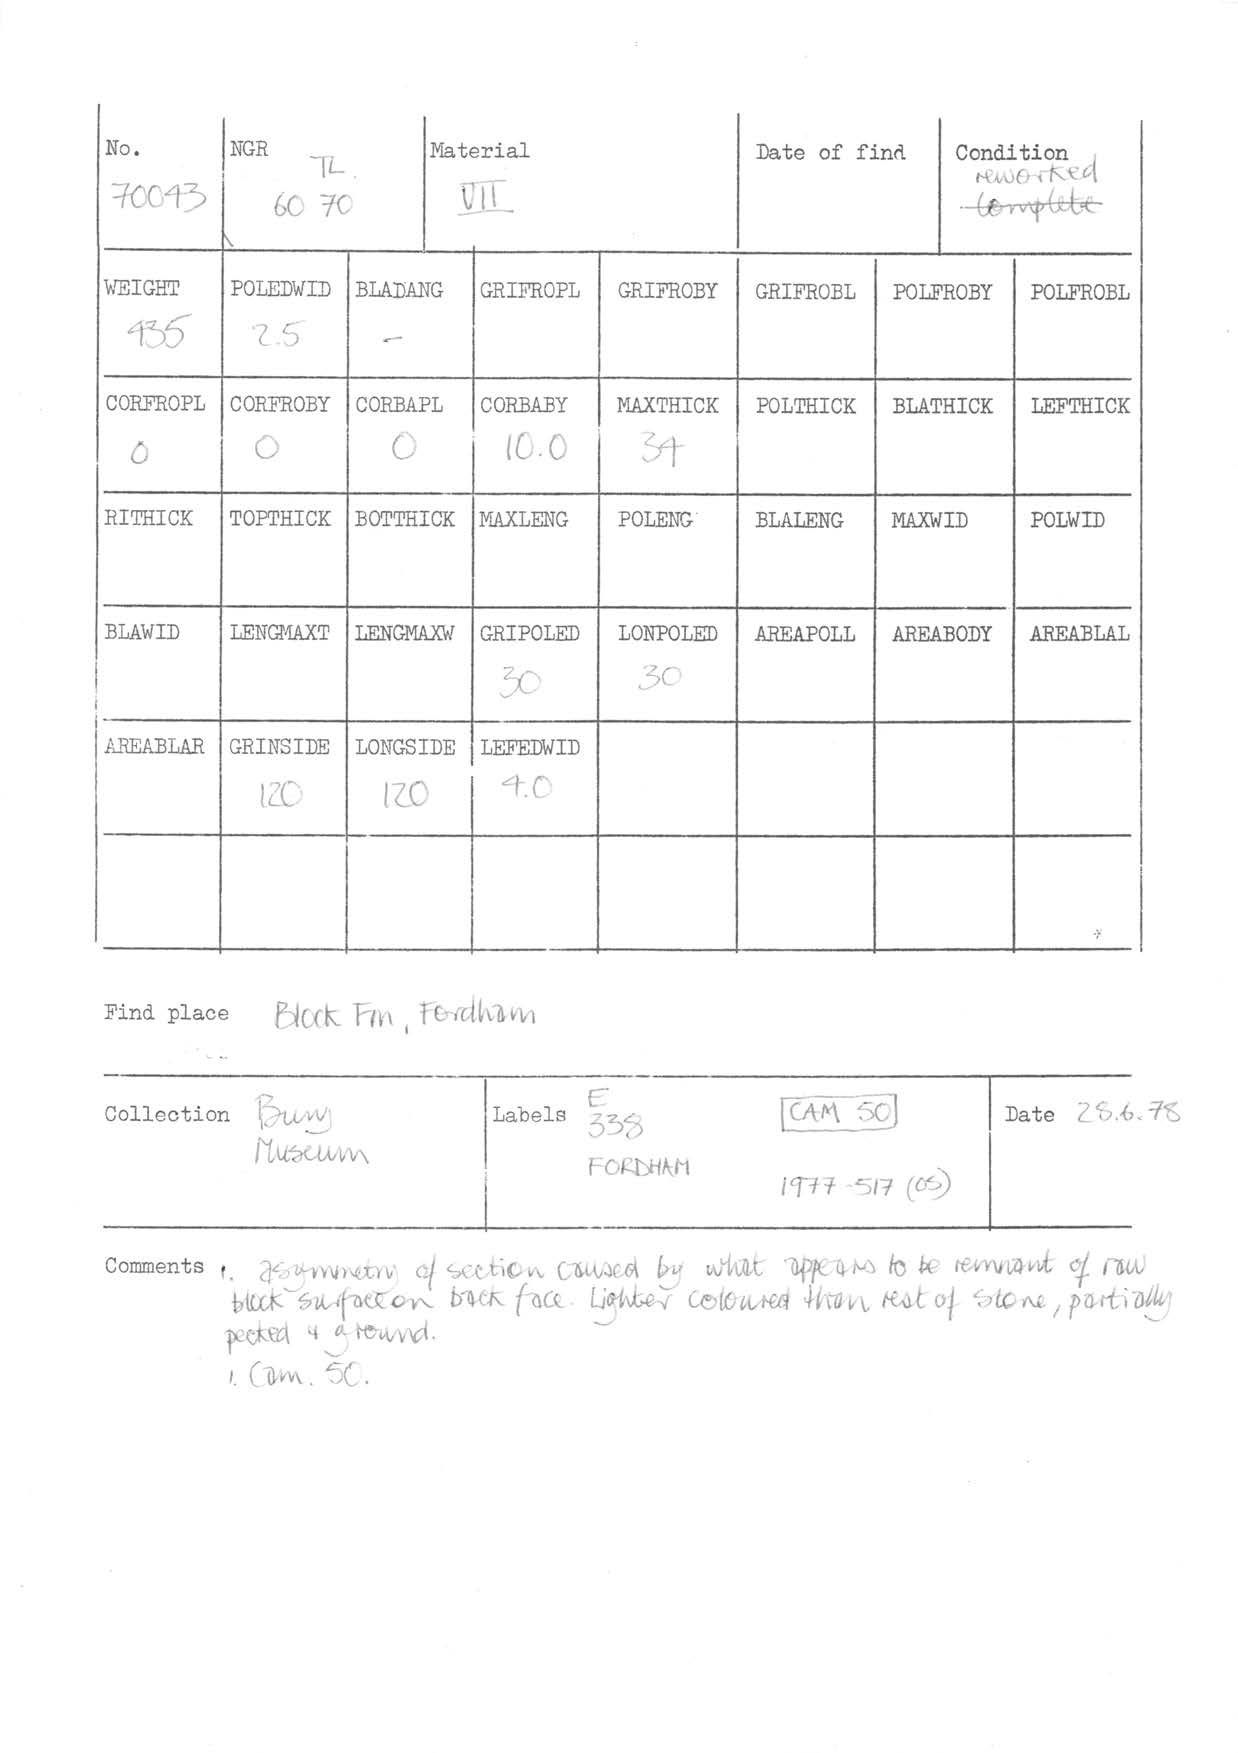 No. NGR Material Date of find Condition
TL. reworked
70043 60 70 VII complete
WEIGHT POLEDWID BLADANG GRIFROPL GRIFROBY GRIFROBL POLFROBY POLFROBL
435 2.5 -
CORFROPL CORFROBY CORBAPL CORBABY MAXTHICK POLTHICK BLATHICK LEFTHICK
0 0 0 10.0 34
RITHICK TOPTHICK BOTTHICK MAXLENG POLENG BLALENG MAXWID POLWID
BLAWID LENGMAXT LENGMAXW GRIPOLED LONPOLED AREAPOLL AREABODY AREABLAL
30 30
AREABLAR GRINSIDE LONGSIDE LEFEDWID
120 120 4.0
Find place Block Fm, Fordham
Collection Bury Museum
Labels E
338
FORDHAM
CAM 50
1977-517 (OS)
Date 28.6.78
Comments 1. asymmetry of section caused by what appears to be remnant of raw
block surface on back face. Lighter coloured than rest of stone, partially
pecked & ground.
1. Cam. 50.